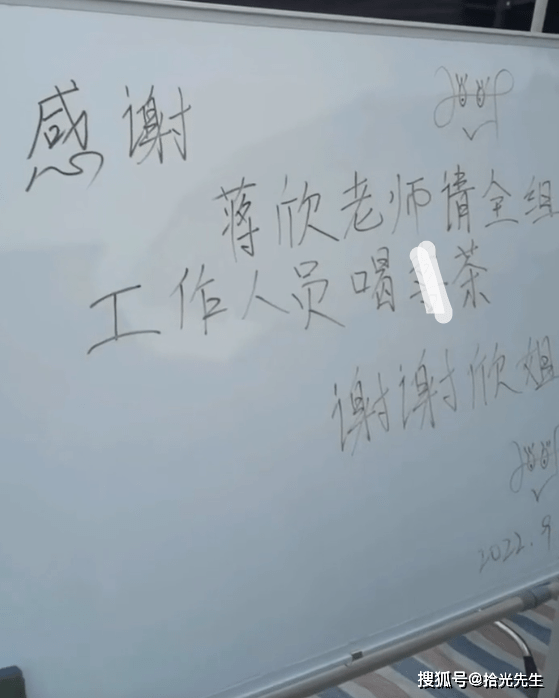 感谢
蒋欣老师请全组
工作人员喝茶
谢谢欣姐
2022.9
搜狐号@拾光先生